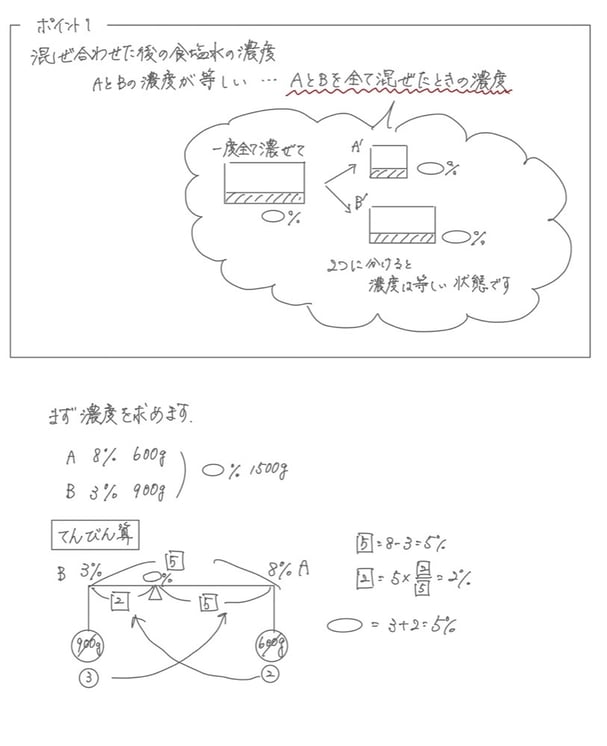 ポイント1
混ぜ合わせた後の食塩水の濃度
AとBの濃度が等しい … AとBを全て混ぜたときの濃度
一度全て濃ぜて
%
A'
%
B'
%
2つに分けると
濃度は等しい状態です
まず濃度を求めます.
A 8% 600g
B 3% 900g
% 1500g
てんびん算
B 3%
5
%
8% A
2
5
900g
600g
3
2
5 = 8-3=5%
2 = 5× 2/5 = 2%
= 3+2=5%